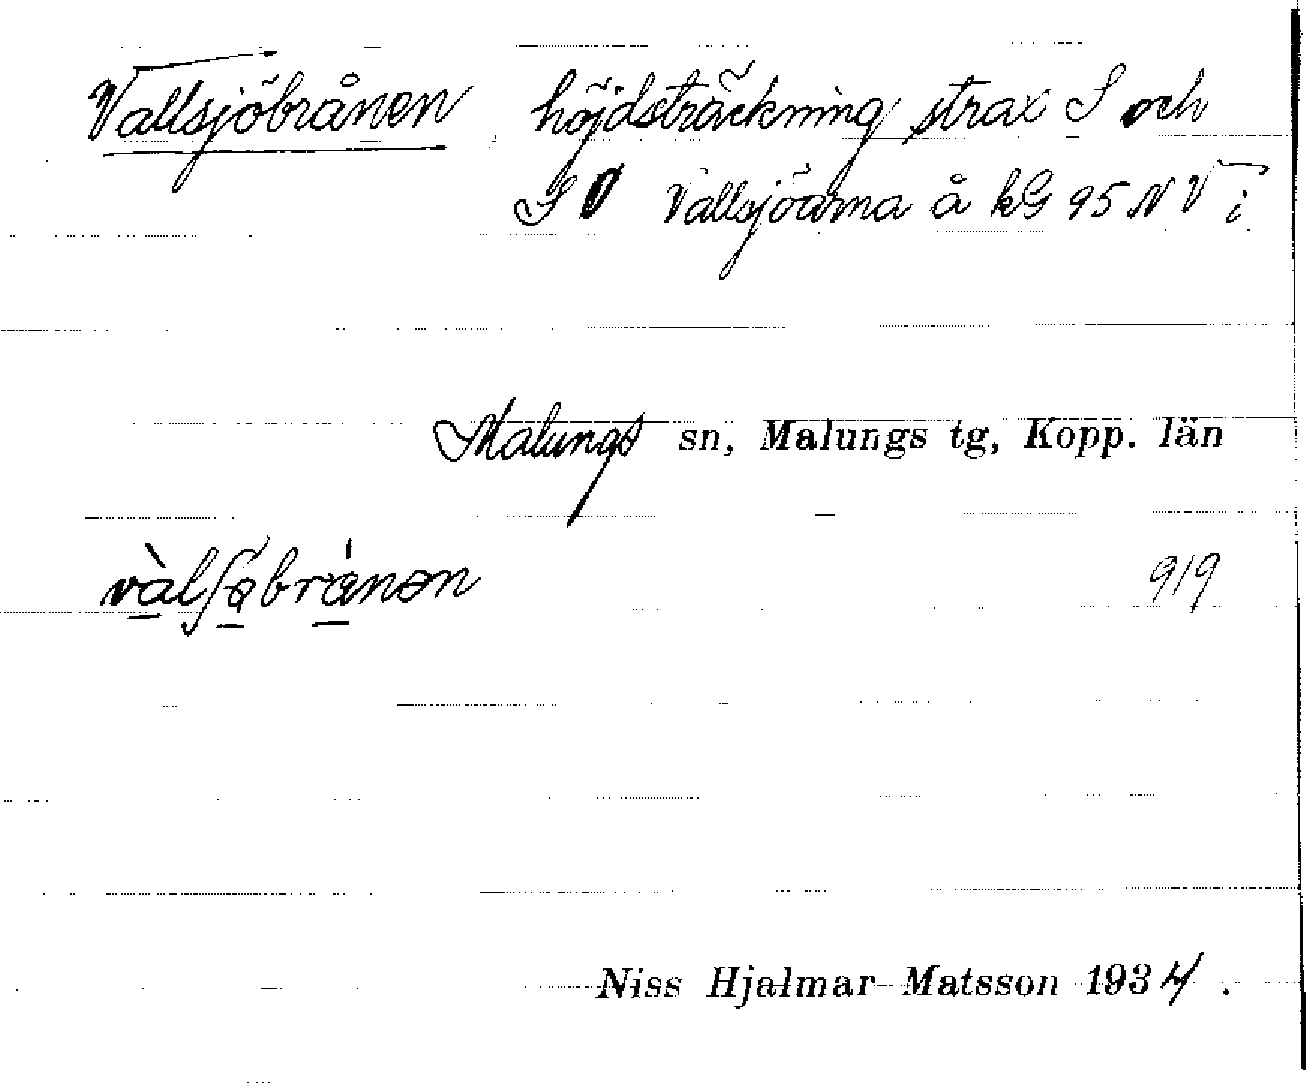 Vallsjöbrånen höjdsträckning strax S och
SO Vallsjöarna å kG 95 NV i
Malungs sn, Malungs tg, Kopp. län
919
Niss Hjalmar Matsson 1934.